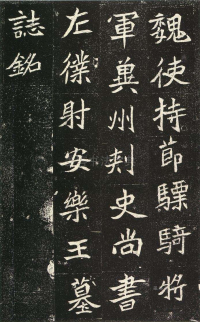 魏使持節驃騎將
軍冀州刺史尚書
左僕射安樂王墓
誌銘